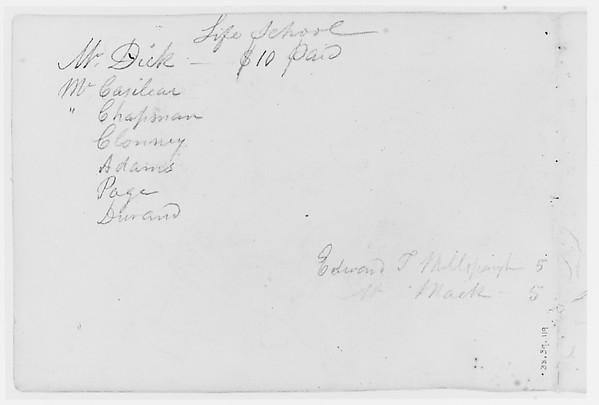 Life School
Mr. Dick — $10 Paid
Mr Casilear
" Chapman
Clonney
Adams
Page
Durand
Edward T Millspaugh 5
Mack - 5